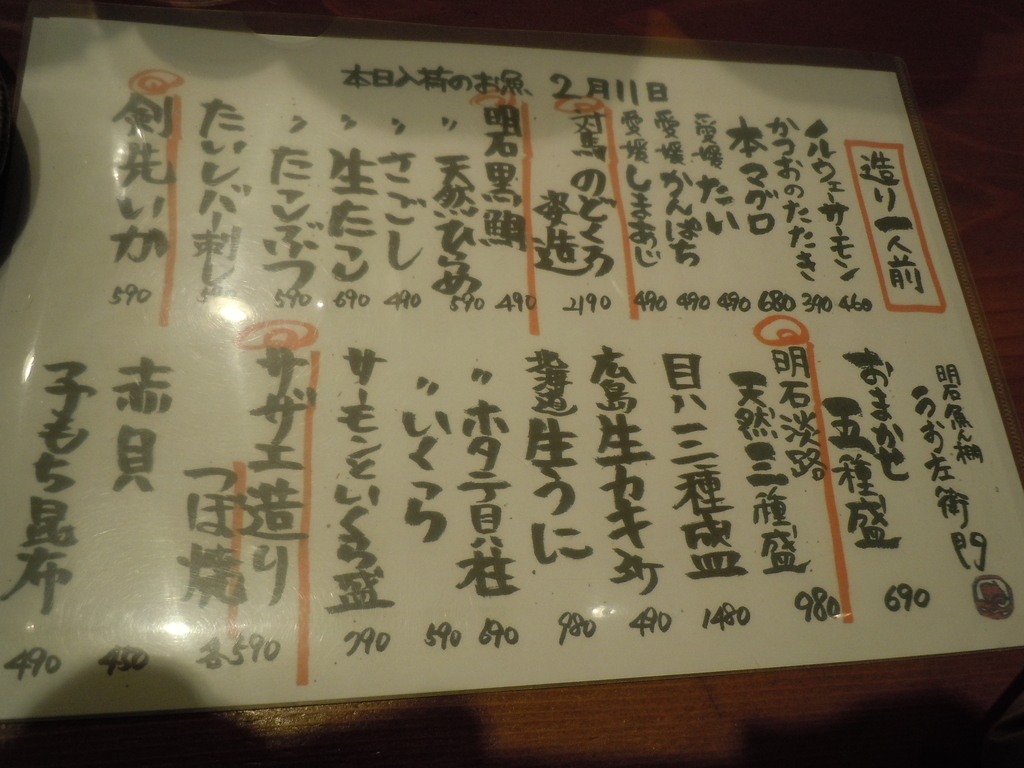 本日入荷のお魚 2月11日
造り一人前
ノルウェーサーモン 460
かつおのたたき 390
本マグロ 680
愛媛 たい 490
愛媛 かんぱち 490
愛媛 しまあじ 490
対馬 のどぐろ 姿造 2190
明石 黒鯛 490
〃 天然ひらめ 590
〃 さごし 490
〃 生たこ 690
〃 たこぶつ 590
たいレバー刺し
剣先いか 590
明石魚ん棚
うお左衛門
おまかせ
五種盛 690
明石淡路
天然三種盛 980
貝八三種盛 1480
広島生カキ 490
北海道生うに 980
〃 ホタテ貝柱 690
〃 いくら 590
サーモンといくら盛 790
サザエ造り
つぼ焼 各590
赤貝 450
子もち昆布 490